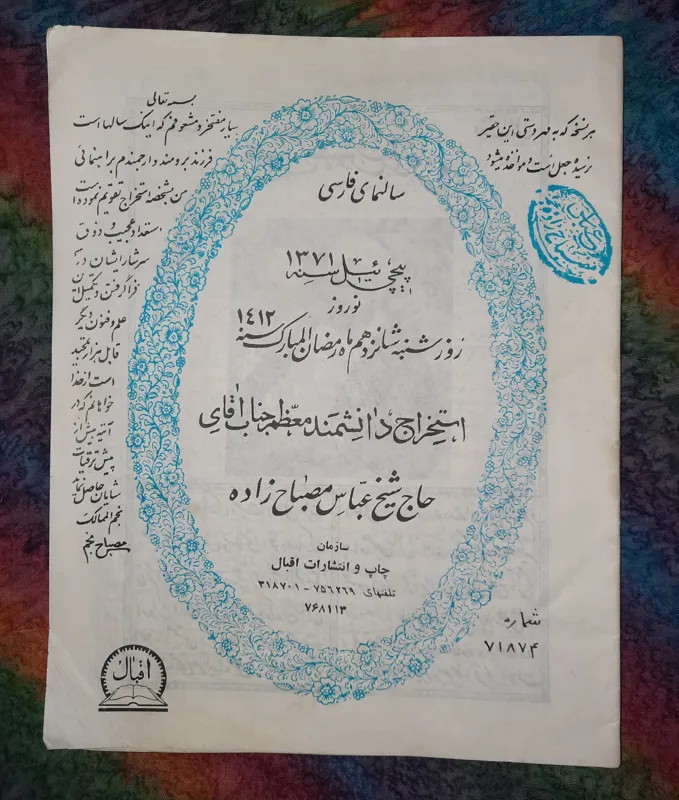 بسمه تعالی
بسیار مفتخر و مشعوفم که اینک سالهاست
فرزند برومند و ارجمندم براهنمائی
من بشخصه استخراج تقویم نموده است
استعداد عجیب و ذوق
سرشار ایشان در
فراگرفتن و تکمیل
علم و فنون دیگر
قابل هزار تمجید
است از خدا
خواهانم که در
آتیه بیش از
پیش ترقیات
شایان حاصل نماید
نجم الممالک
مصباح منجم
هر نسخه که به مهر دستی این حقیر
نرسیده جعل است و مواخذه میشود
سالنمای فارسی
پیچی ئیل سنه ۱۳۷۱
نوروز
روز شنبه شانزدهم ماه رمضان المبارک سنه ۱۴۱۲
استخراج دانشمند معظم جناب آقای
حاج شیخ عباس مصباح زاده
سازمان
چاپ و انتشارات اقبال
تلفنهای ۷۵۶۲۶۹ - ۳۱۸۷۰۱
۷۶۸۱۱۳
شماره
۷۱۸۷۴
اقبال